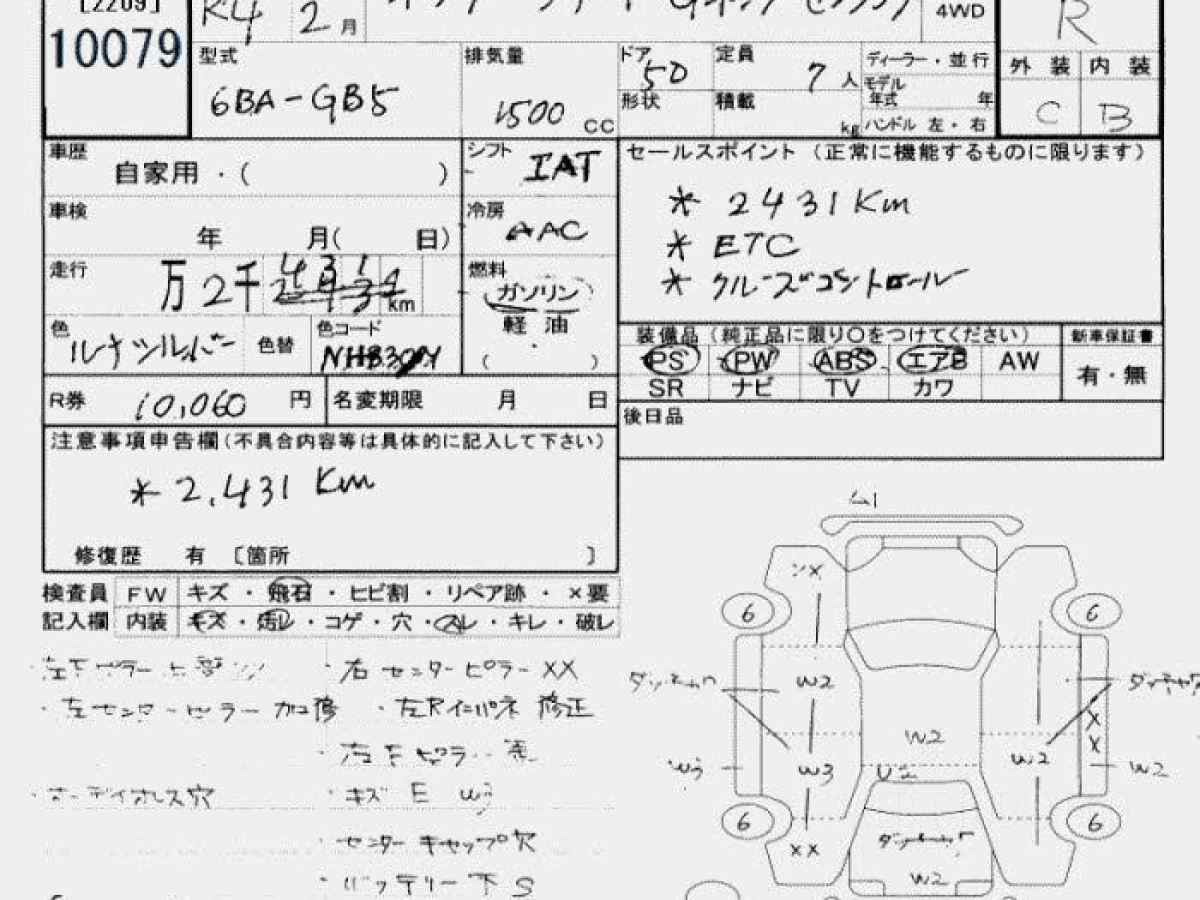 [2209]
10079
R4 2月
4WD
R
型式
6BA-GB5
排気量
1500 cc
ドア
5D
形状
定員
7人
積載
kg
ディーラー・並行
モデル
年式 年
ハンドル 左・右
外装 内装
C B
車歴
自家用・( )
シフト
IAT
セールスポイント (正常に機能するものに限ります)
* 2431Km
* ETC
* クルーズコントロール
車検
年 月( 日)
冷房
AAC
走行
万2千431
km
燃料
ガソリン
軽油
・
( )
色
ルナシルバー
色替
色コード
NH830M
装備品 (純正品に限り○をつけてください)
PS PW ABS エアB AW
SR ナビ TV カワ
新車保証書
有・無
R券 10,060 円
名変期限 月 日
後日品
注意事項申告欄(不具合内容等は具体的に記入して下さい)
* 2,431 Km
修復歴 有 〔箇所 〕
検査員 FW キズ・飛石・ヒビ割・リペア跡・×要
記入欄 内装 キズ・汚レ・コゲ・穴・スレ・キレ・破レ
・右センターピラーXX
・左センターピラー加修
・左Rインパネ修正
・オーディオレス穴
・キズ E
・センターキャップ欠
・バッテリー下S
A1
6
6
W2
W2
W3
W2
W3
W2
U2
XX
XX
6
6
W2